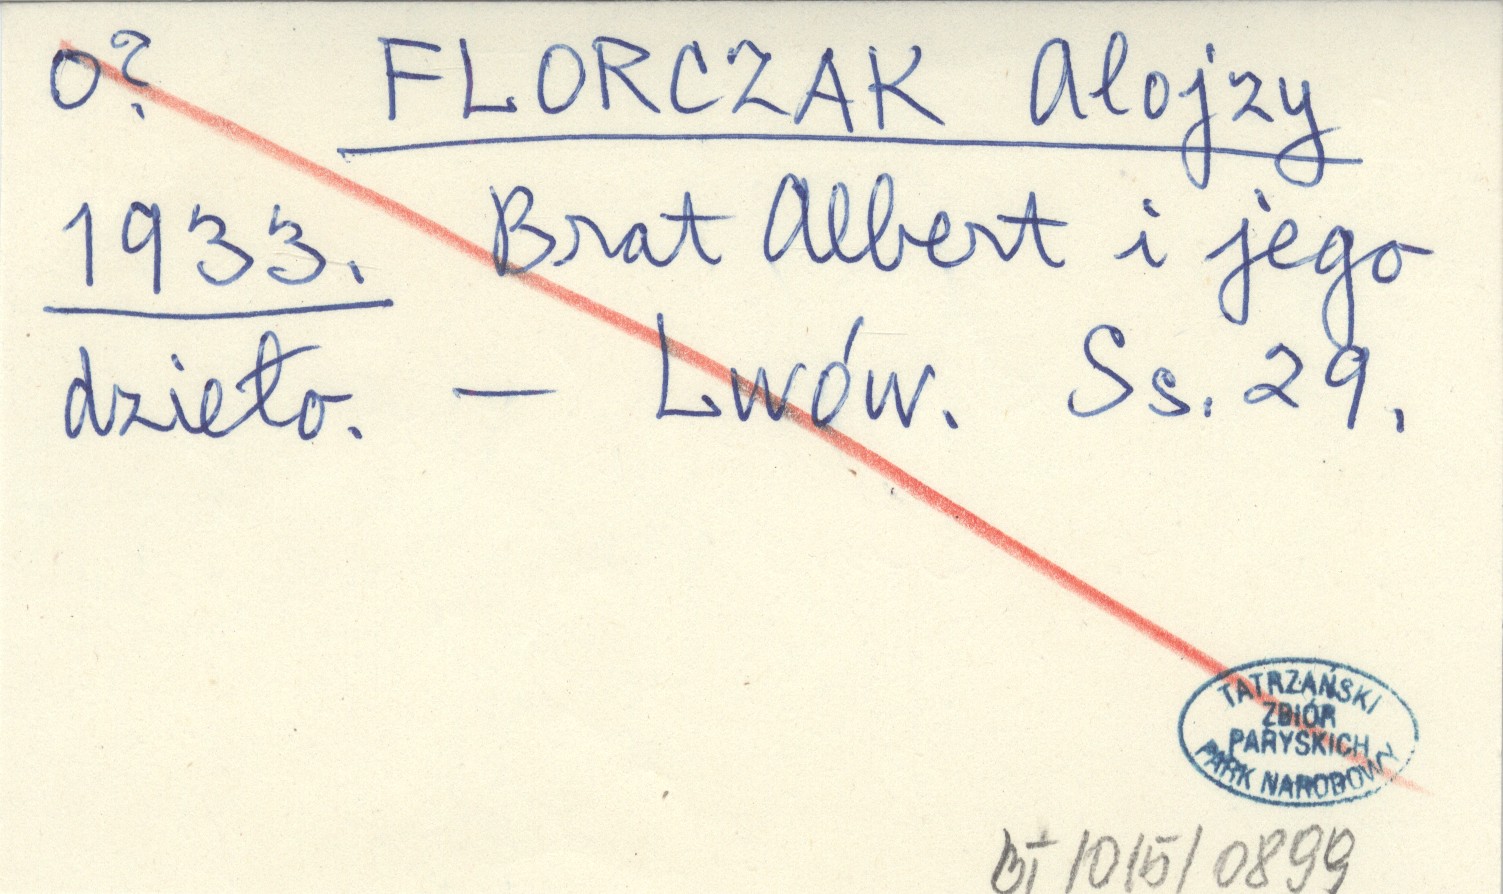 o? FLORCZAK Alojzy
1933. Brat Albert i jego
dzieło. — Lwów. Ss. 29.
TATRZAŃSKI
ZBIÓR
PARYSKICH
PARK NARODOWY
BT/015/0899